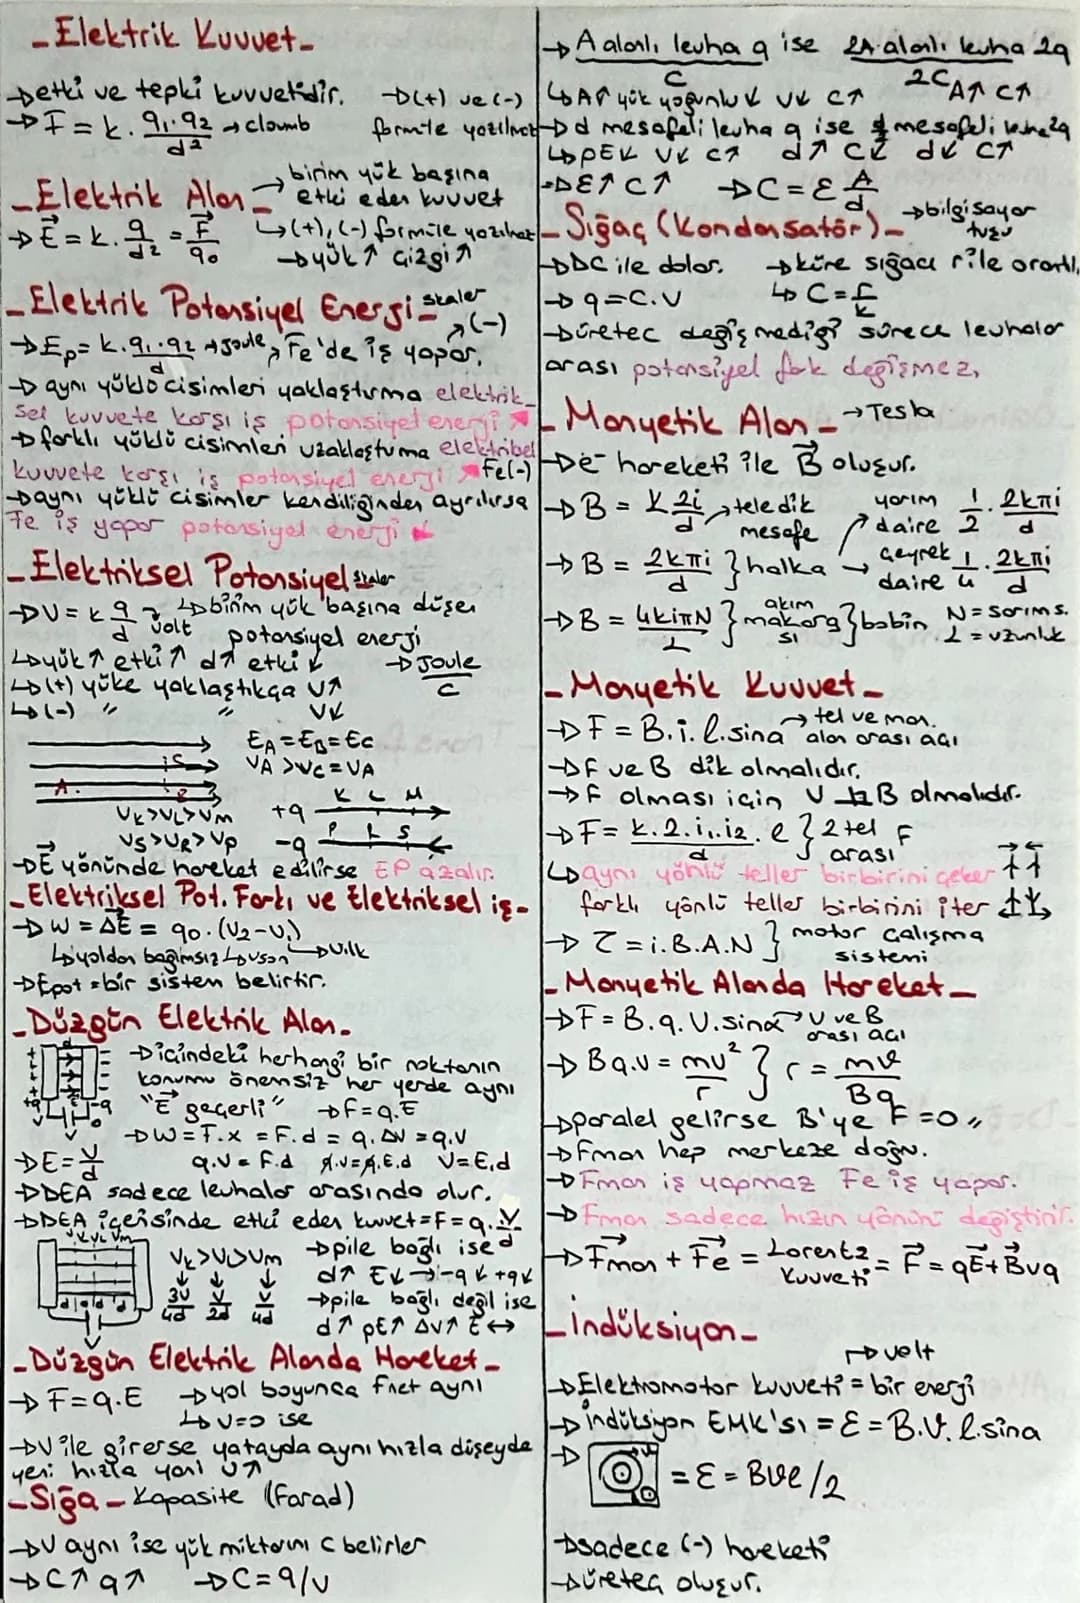 - Elektrik Kuvvet -
→ etki ve tepki kuvvetidir. → (+) ve (-)
→ F = k. q₁.q₂ / d² → cloumb formüle yazılmaz
- Elektrik Alan - → birim yük başına
etki eden kuvvet
→ E = k. q / d² = F / q₀ ↳ (+), (-) formüle yazılmaz
→ yük ↑ çizgi ↑
- Elektrik Potansiyel Enerji - skaler
→ Ep = k. q₁.q₂ / d → joule, Fe'de iş yapar. → (-)
→ aynı yüklü cisimleri yaklaştırma elektrik-
sel kuvvete karşı iş potansiyel enerji ↗
→ farklı yüklü cisimleri uzaklaştırma elektriksel
kuvvete karşı iş potansiyel enerji ↗ Fe(-)
→ aynı yüklü cisimler kendiliğinden ayrılırsa
Fe iş yapar potansiyel enerji ↙
- Elektriksel Potansiyel skaler
→ V = k q / d → volt ↳ birim yük başına düşen
potansiyel enerji
↳ yük ↑ etki ↑ d ↑ etki ↓ → Joule / C
↳ (+) yüke yaklaştıkça V ↑
↳ (-) " " V ↓
EA = EB = EC
VA > VC = VA
A. B C
VK > VL > VM +q K L M
VS > VR > VP -q P L S
→ E yönünde hareket edilirse EP azalır.
- Elektriksel Pot. Farkı ve Elektriksel iş -
→ W = ΔE = q₀.(V₂ - V₁)
↳ yoldan bağımsız ↳ Vson ↳ Vilk
→ Epot = bir sistem belirtir.
- Düzgün Elektrik Alan -
→ içindeki herhangi bir noktanın
konumu önemsiz her yerde aynı
"E geçerli" → F = q.E
+q -q
V
→ W = F.x = F.d = q.ΔV = q.V
→ E = V / d q.V = F.d q.V = q.E.d V = E.d
→ DEA sadece levhalar arasında olur.
→ DEA içerisinde etki eden kuvvet = F = q. V / d
VK VL VM
VK > VL > VM → pile bağlı ise
3V / 4d V / 2d V / 4d d ↑ E ↓ → -q ↓ +q ↓
→ pile bağlı değil ise
d d d d
d ↑ pE ↑ ΔV ↑ E ↔
V
- Düzgün Elektrik Alanda Hareket -
→ F = q.E → yol boyunca Fnet aynı
↳ V=0 ise
→ V ile girerse yatayda aynı hızla düşeyde
yeni hızla yani V ↑
- Sığa - Kapasite (Farad)
→ V aynı ise yük miktarını C belirler
→ C ↑ q ↑ → C = q/V
→ A alanlı levha q ise 2A alanlı levha 2q
C 2C
↳ A ↑ yük yoğunluk ↓ V ↓ C ↑ A ↑ C ↑
→ d mesafeli levha q ise mesafeli levha 2q
↳ pE ↓ V ↓ C ↑ d ↑ C ↓ d ↓ C ↑
→ E ↑ C ↑ → C = ε A / d
- Sığaç (Kondansatör) - → bilgisayar
tuşu
→ DC ile dolar. → küre sığacı r ile orantılı
→ q = C.V ↳ C = r / k
→ üreteç değişmediği sürece levhalar
arası potansiyel fark değişmez.
- Manyetik Alan - → Tesla
→ e⁻ hareketi ile B oluşur.
→ B = K 2i / d → tele dik mesafe
yarım daire 1/2 . 2kπi / d
→ B = 2kπi / d } halka → çeyrek daire 1/4 . 2kπi / d
→ B = 4kiπN / L } akım makarası } bobin N = sarım s.
L = uzunluk
- Manyetik Kuvvet -
→ F = B.i.l.sina → tel ve man.
alan arası açı
→ F ve B dik olmalıdır.
→ F olması için V B olmalıdır.
→ F = k.2.i₁.i₂.l / d } 2 tel arası F
↳ aynı yönlü teller birbirini çeker
farklı yönlü teller birbirini iter
→ τ = i.B.A.N } motor çalışma
sistemi
- Manyetik Alanda Hareket -
→ F = B.q.V.sinα → V ve B
arası açı
→ Bq.V = mv² / r } r = mv / Bq
→ paralel gelirse B'ye F = 0 "
→ Fman hep merkeze doğru.
→ Fman iş yapmaz Fe iş yapar.
→ Fman sadece hızın yönünü değiştirir.
→ Fman + Fe = Lorentz Kuvveti = F = qE + Bvq
- İndüksiyon -
→ volt
→ Elektromotor kuvveti = bir enerji
→ indüksiyon EMK'sı = ε = B.V.l.sina
→ = ε = Bvl/2
→ sadece (-) hareketi
→ üreteç oluşur.